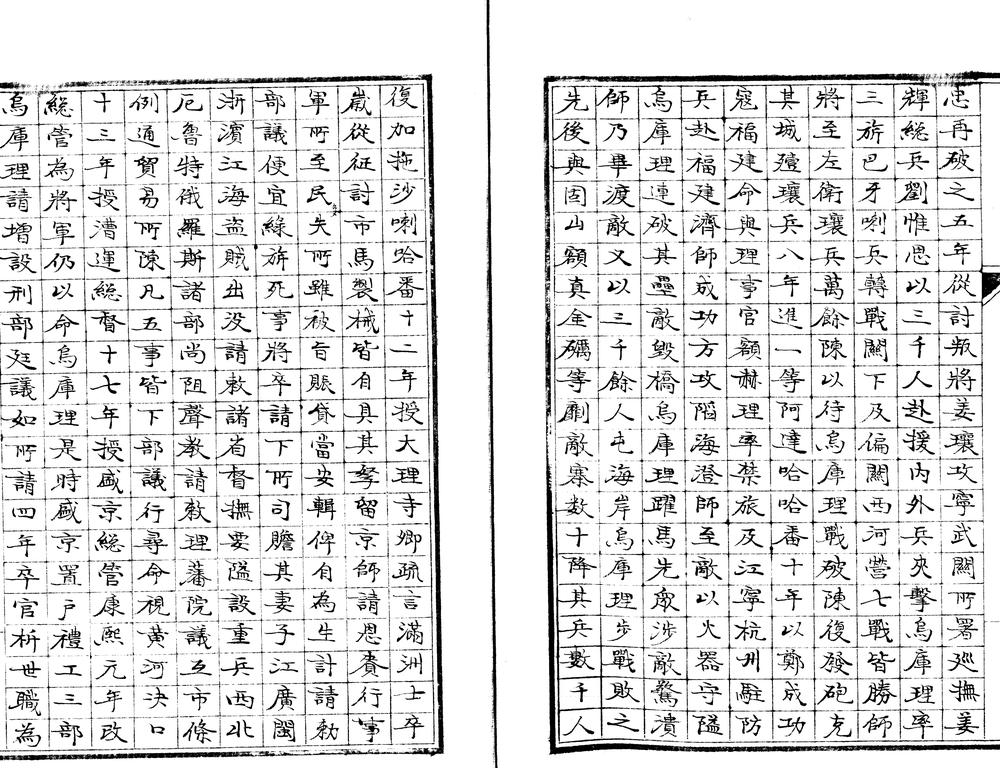 忠再破之五年從討叛將姜瓖攻寧武關所署巡撫姜
輝總兵劉惟思以三千人赴援內外兵夾擊烏庫理率
三旂巴牙喇兵轉戰關下及偏關西河營七戰皆勝師
將至左衛瓖兵萬餘陳以待烏庫理戰破陳復發砲克
其城殪瓖兵八年進一等阿達哈哈番十年以鄭成功
寇福建命與理事官額赫理率禁旅及江寧杭州駐防
兵赴福建濟師成功方攻陷海澄師至敵以火器守隘
烏庫理連破其壘敵毀橋烏庫理躍馬先眾涉敵驚潰
師乃畢渡敵又以三千餘人屯海岸烏庫理步戰敗之
先後與固山額真金礪等劘敵寨數十降其兵數千人
復加拖沙喇哈番十二年授大理寺卿疏言滿洲士卒
歲從征討市馬製械皆自具其孥留京師請恩賚行事
軍所至民失所雖被旨賑貸當安輯俾自為生計請勑
部議便宜綠旂死事將卒請下所司贍其妻子江廣閩
浙濱江海盜賊出沒請敕諸省督撫要隘設重兵西北
厄魯特俄羅斯諸部尚阻聲教請敕理藩院議互市條
例通貿易所陳凡五事皆下部議行尋命視黃河決口
十三年授漕運總督十七年授盛京總管康熙元年改
總管為將軍仍以命烏庫理是時盛京置戶禮工三部
烏庫理請增設刑部廷議如所請四年卒官析世職為